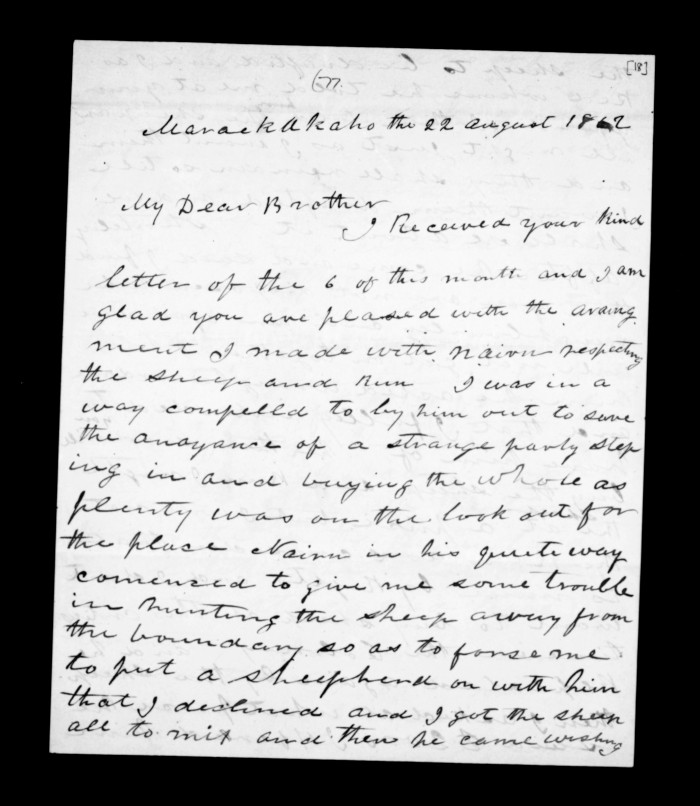 [18]
Maraekakaho the 22 august 1862
My Dear Brother
I Received your kind
letter of the 6 of this month and I am
glad you are pleased with the araing
ment I made with Nairn respecting
the sheep and Run I was in a
way compelld to by him out to save
the anoyance of a strange party step
ing in and buying the whole as
plenty was on the look out for
the place Nairn in his quite way
comenced to give me some trouble
in hunting the sheep away from
the boundary so as to forse me
to put a sheepherd on with him
that I declined and I got the sheep
all to mix and then he came wishing